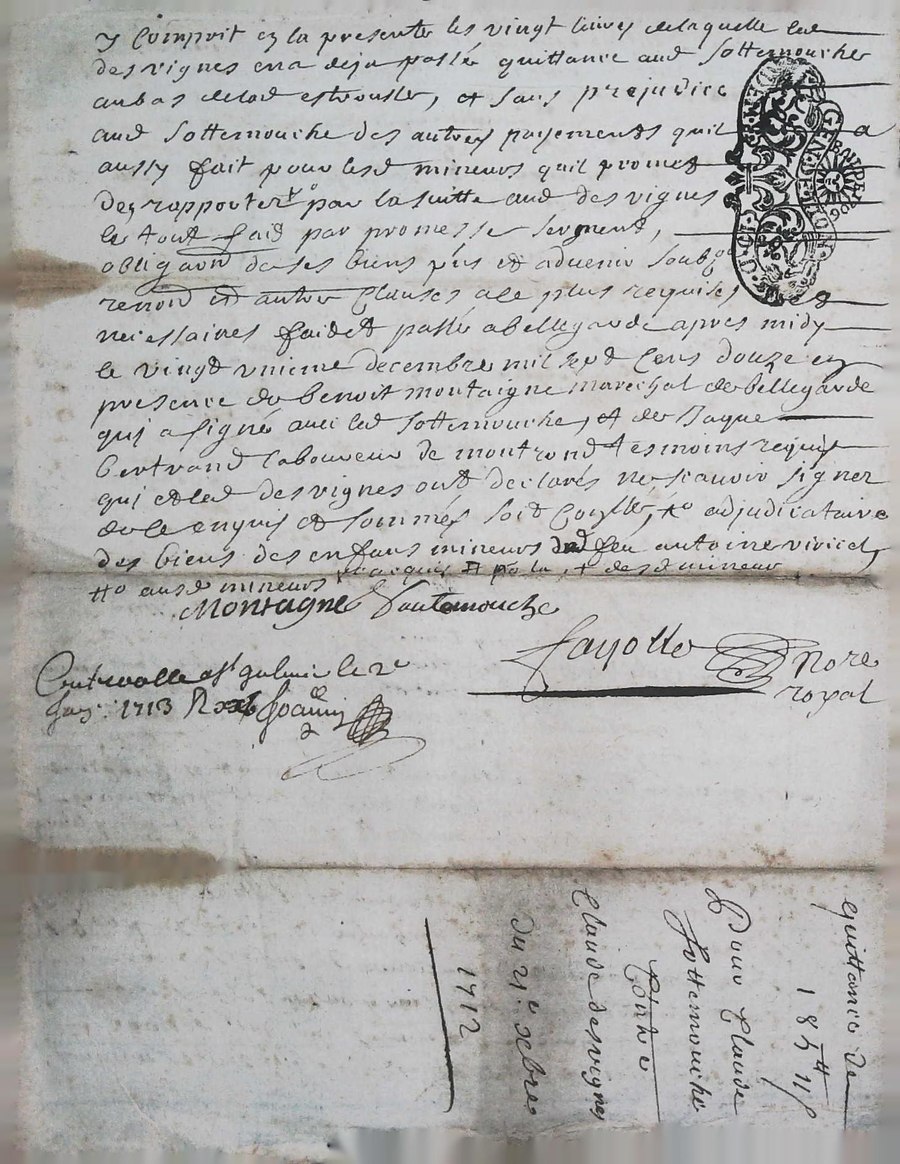 y Comprit en la presente les vingt livres delaquelle led
desvignes en a deja passé quittance aud Sottemouche
aubas delad estrousse, et sans prejudice
aud Sottemouche des autres payements quil a
aussy fait pour lesd mineurs quil promet
de rapporter par la suitte aud desvignes
le tout faid par promesse serment,
obligaon de ses biens pnts et advenir
renond et autres Clauses a ce plus requises
necessaires faid et passé a bellegarde apres midy
le vingt unieme decembre mil sept Cens douze en
presence de benoit montaigne marechal de bellegarde
qui a signé avec led Sottemouche, et de Jaque
bertrand laboureur de montrond tesmoins requis
qui et led desvignes ont declarés ne scavoir signer
de ce enquis et sommés soit Conllé, adjudicataire
des biens des enfans mineurs dud feu antoine
auxd mineurs
Montagne Sautemouche
fayolle Nore
royal
Controlle a st galmier le 2e
Janv. 1713 R
GEN
quittance de
Pour Claude
Sottemouche
Contre
Claude desvignes
du 21e xbre
1712